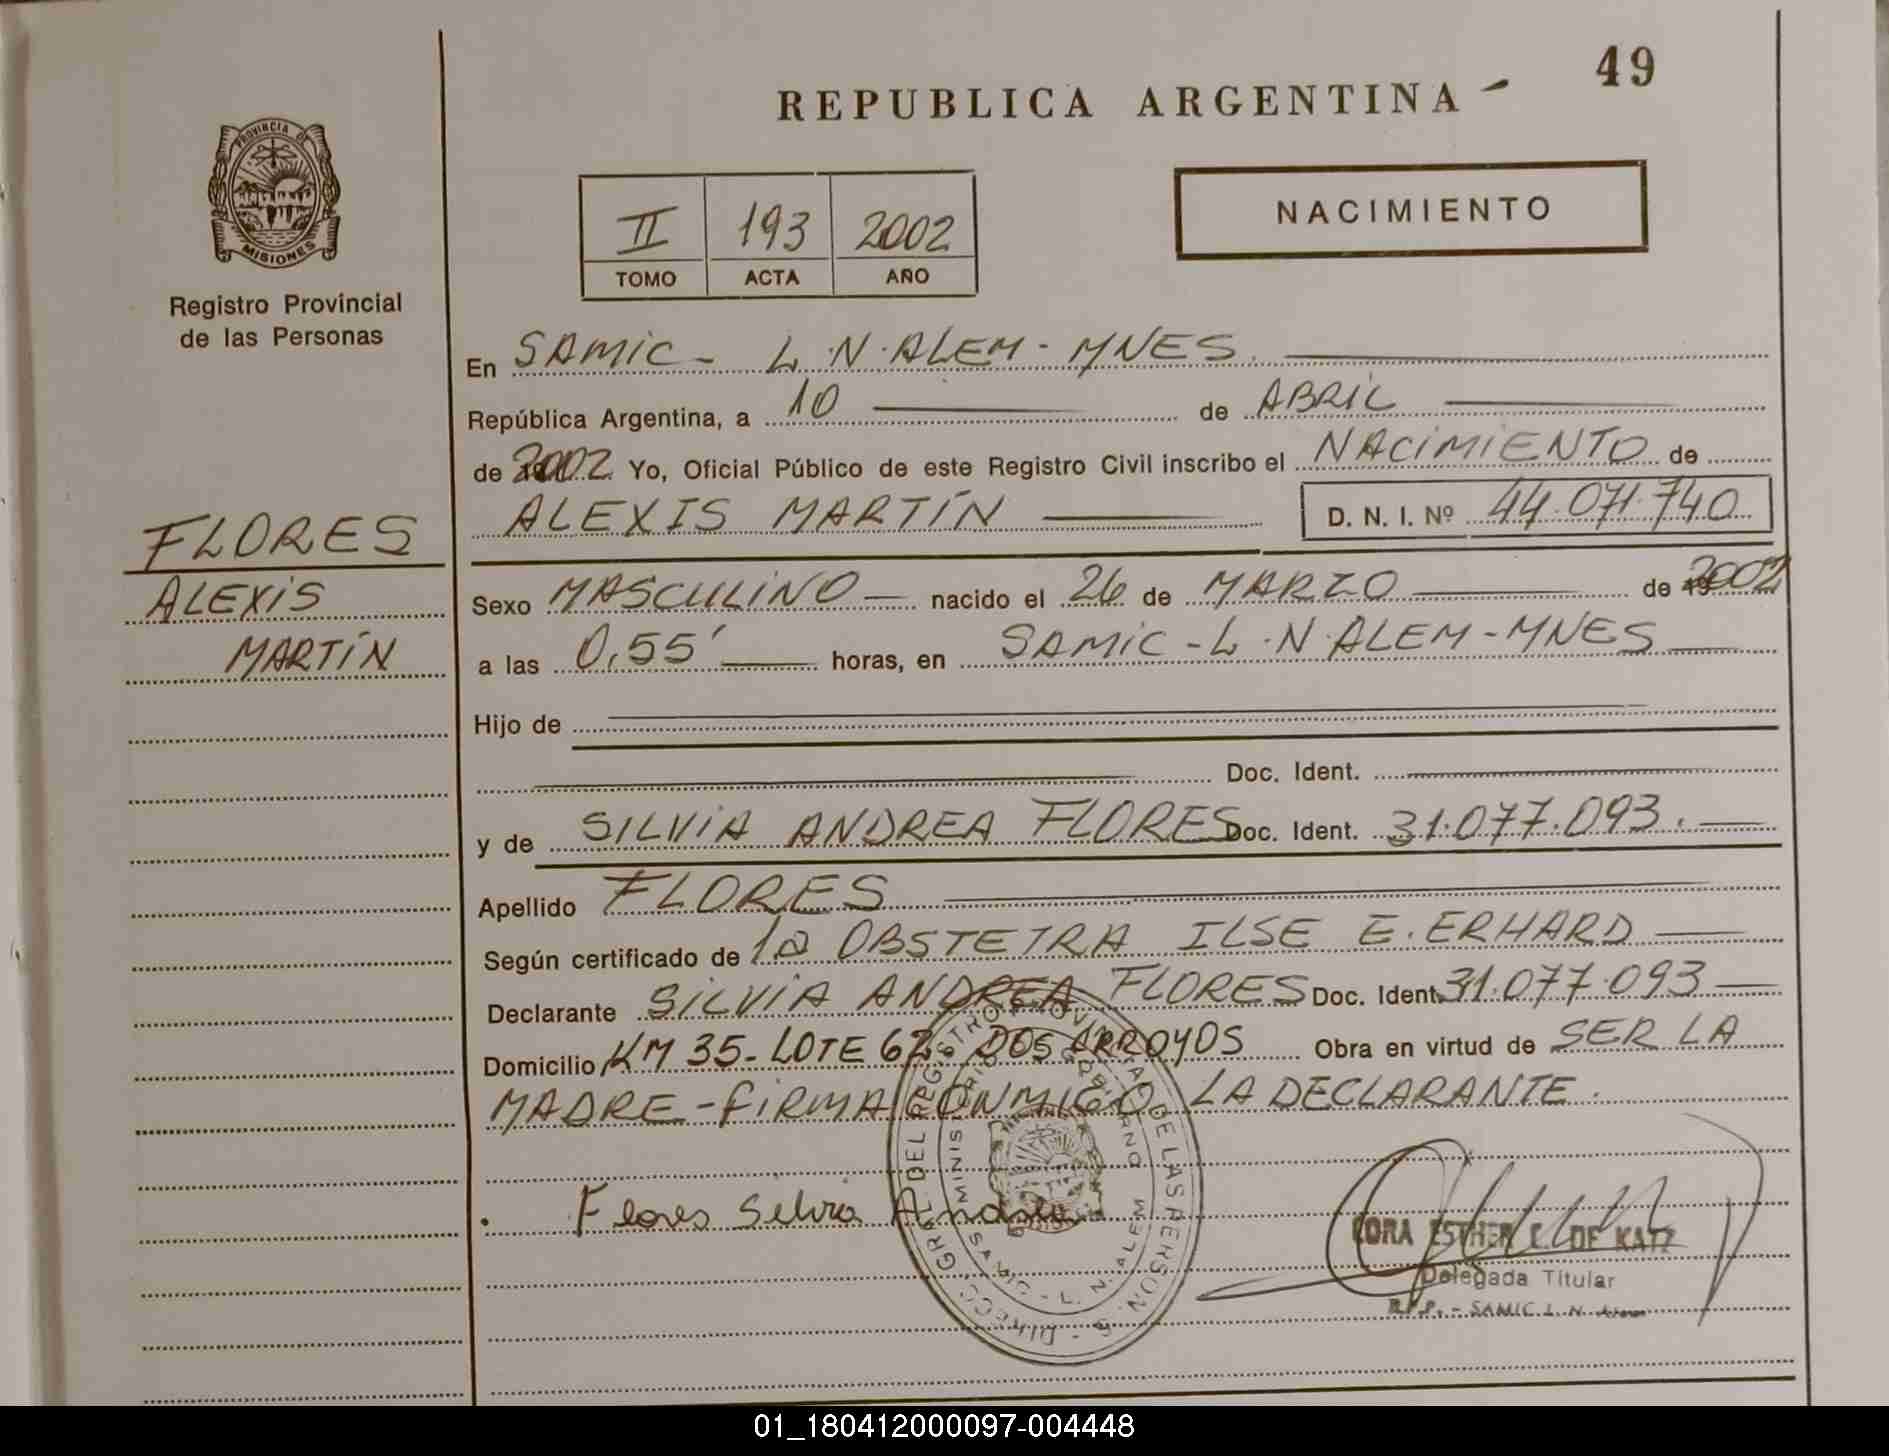 49
REPUBLICA ARGENTINA
PROVINCIA DE
MISIONES
Registro Provincial
de las Personas
II 193 2002
TOMO ACTA AÑO
NACIMIENTO
En SAMIC - L.N. ALEM - MNES.
República Argentina, a 10 de ABRIL
de 2002 Yo, Oficial Público de este Registro Civil inscribo el NACIMIENTO de
ALEXIS MARTÍN D. N. I. Nº 44.071.740
FLORES
ALEXIS
MARTÍN
Sexo MASCULINO nacido el 26 de MARZO de 2002
a las 0,55' horas, en SAMIC - L.N. ALEM - MNES
Hijo de
Doc. Ident.
y de SILVIA ANDREA FLORES Doc. Ident. 31.077.093.
Apellido FLORES
Según certificado de la OBSTETRA ILSE E. ERHARD
Declarante SILVIA ANDREA FLORES Doc. Ident. 31.077.093
Domicilio KM 35 - LOTE 62 - DOS ARROYOS Obra en virtud de SER LA
MADRE - FIRMA CONMIGO LA DECLARANTE.
Flores Silvia Andrea
CORA ESTHER E. DE KATZ
Delegada Titular
R.P.P. - SAMIC L. N. Alem
DIRECC. GRAL. DEL REGISTRO PROVINCIAL DE LAS PERSONAS
MINISTERIO DE GOBIERNO
L. N. ALEM
01_180412000097-004448